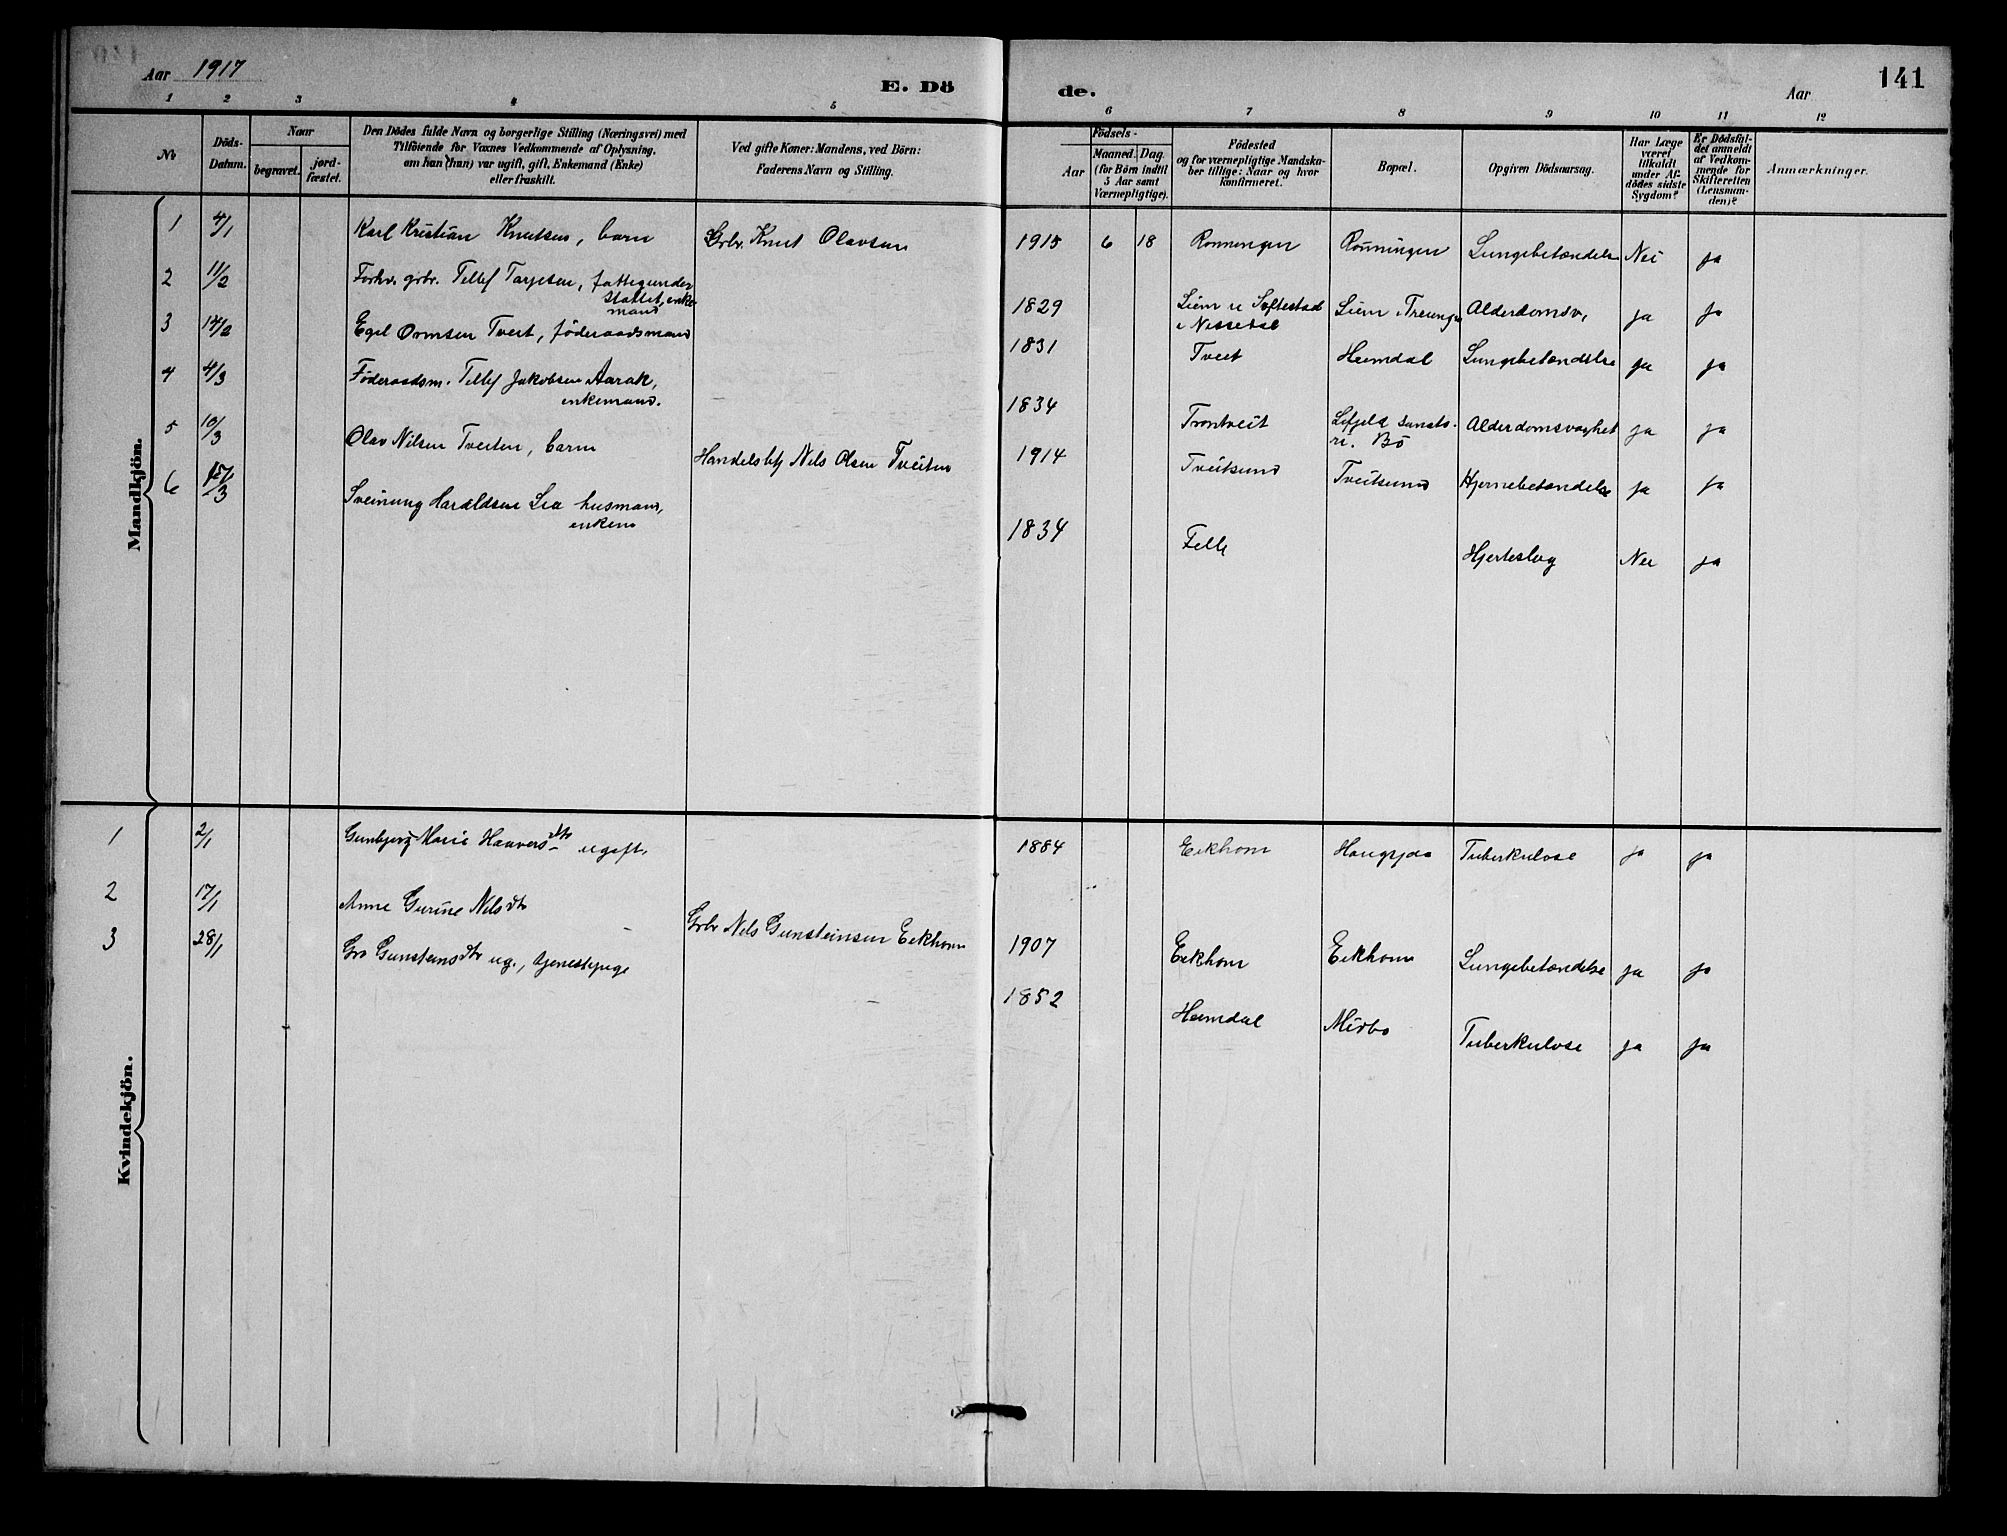 Aar 1917
E. Dö
de.
Aar
141
1 2 3 4 5
6 7 8 9 10 11 12
No
Döds-
Datum.
Naar
begravet.
jord-
fæstet.
Den Dödes fulde Navn og borgerlige Stilling (Næringsvei) med
Tilföiende for Voxnes Vedkommende af Oplysning,
om han (hun) var ugift, gift, Enkemand (Enke)
eller fraskilt.
Ved gifte Koner: Mandens, ved Börn:
Faderens Navn og Stilling.
Födsels-
Aar
Maaned.
Dag.
(for Börn indtil
5 Aar samt
Værnepligtige).
Födested
og for værnepligtige Mandska-
ber tillige: Naar og hvor
konfirmeret.
Bopæl.
Opgiven Dödsaarsag.
Har Læge
været
tilkaldt
under Af-
dödes sidste
Sygdom?
Er Dödsfal-
det anmeldt
af Vedkom-
mende for
Skifteretten
(Lensman-
den)?
Anmærkninger.
Mandkjön.
1 4/1 Karl Kristian Knutsen, barn Grbr. Knut Olavsen 1915 6 18 Rønningen Rønningen Lungebetændelse Nei ja
2 11/2 Forhv. grbr. Tellef Tarjesen, fattigunder
støttet, enke
mand
1829 Liem i Treungen Alderdomsv. ja ja
i Nissedal
3 14/2 Egil Ormsen Tveit, føderaadsmand 1831 Tveit Heimdal Lungebetændelse ja ja
4 4/3 Føderaadsm. Tellef Jakobsen Aarak,
enkemand.
1834 Trontveit Lifjeld sanato-
ri. Bö
Alderdomsvaghet ja ja
5 10/3 Olav Nilsen Tveiten, barn Nils Olsen Tveiten 1914 Tveitsund Tveitsund Hjernebetændelse ja ja
6 Sveinung Haraldsen Lia husmand,
enkem
1834 Felle Hjerteslag Nei ja
Kvindekjön.
1 2/1 Gunbjørg Marie dtr ugift. 1884 Eikhom Tuberkulose ja ja
2 17/1 Anne Gurine Nilsdtr Grbr Nils Gunsteinsen Eikhom 1907 Eikhom Eikhom Lungebetændelse ja ja
3 28/1 Gro Gunsteinsdtr ug., tjenestepige 1852 Heimdal Midbø Tuberkulose ja ja